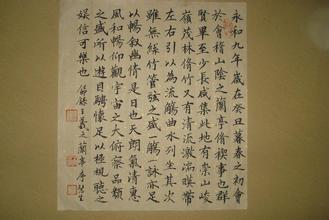 永和九年歲在癸丑暮春之初會
於會稽山陰之蘭亭脩禊事也群
賢畢至少長咸集此地有崇山峻
嶺茂林脩竹又有清流激湍暎帶
左右引以為流觴曲水列坐其次
雖無絲竹管弦之盛一觴一詠亦足
以暢敘幽情是日也天朗氣清惠
風和暢仰觀宇宙之大俯察品類
之盛所以遊目騁懷足以極視聽之
娛信可樂也
節錄王羲之蘭亭序